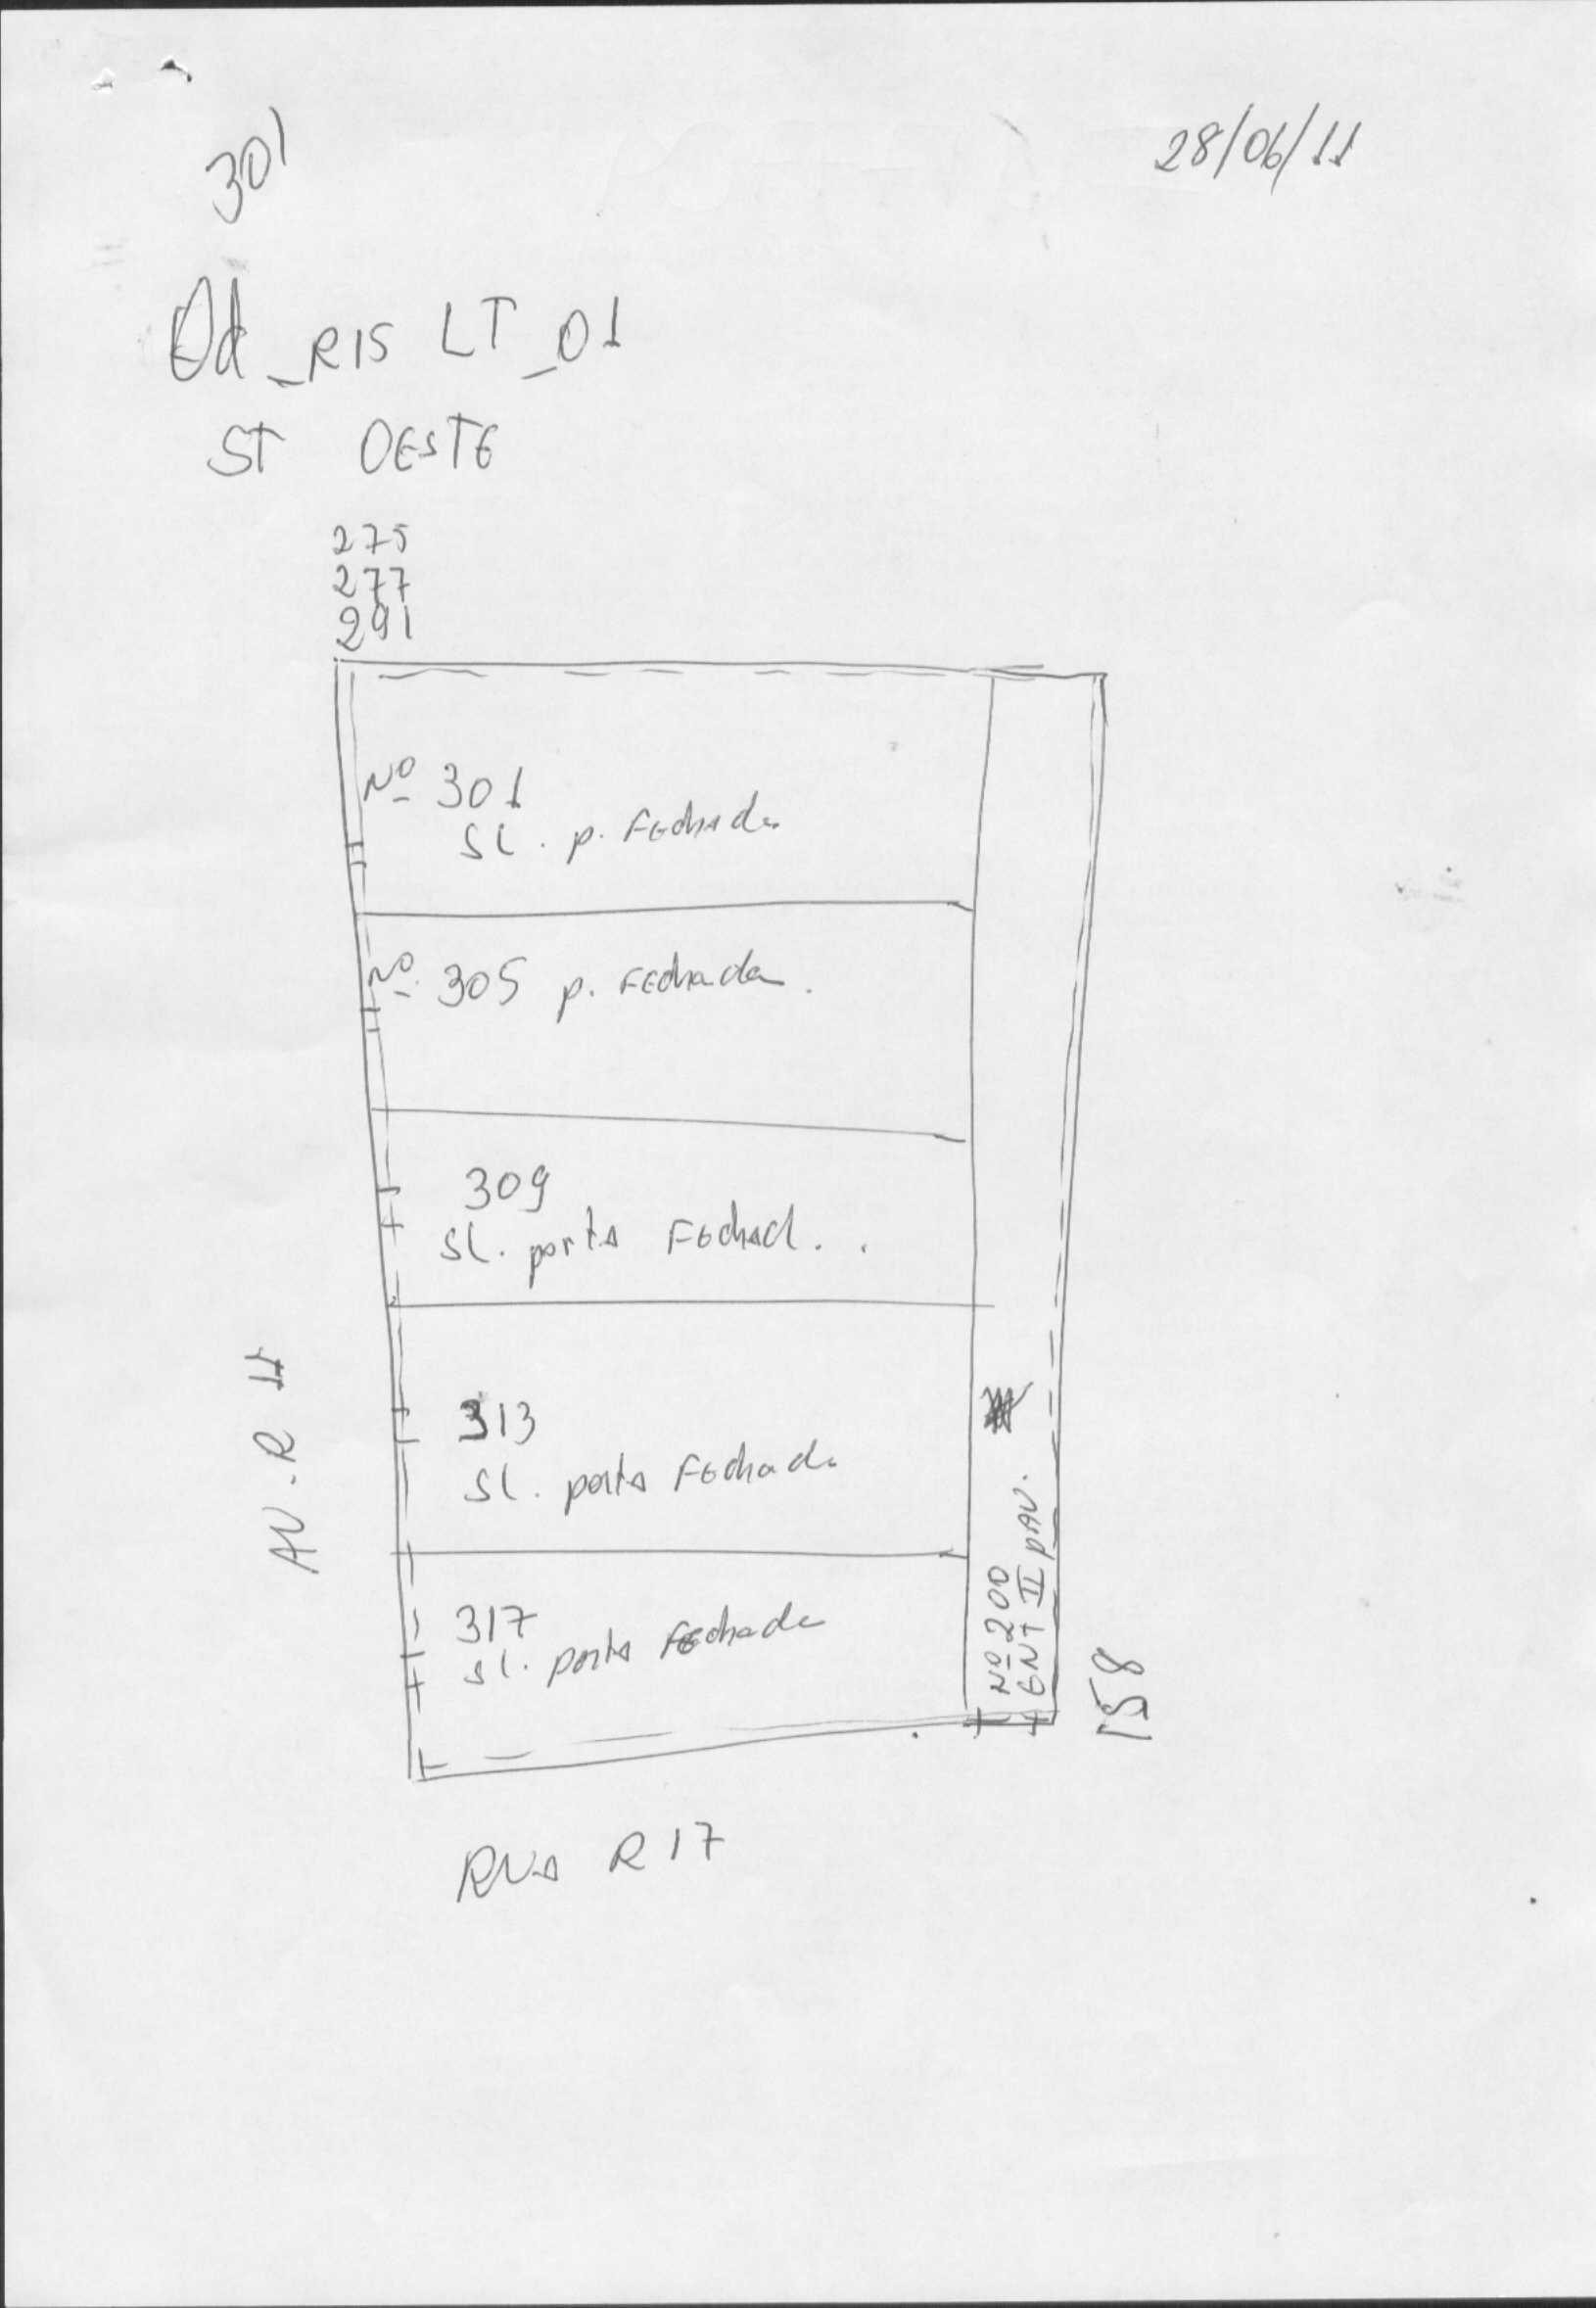 301
28/06/11
Qd_R15 LT_01
ST OESTE
275
277
291
Nº 301
SL. p. Fechada
Nº 305 p. Fechada.
309
SL. porta Fechad..
313
SL. porta Fechada
317
SL. porta Fechada
Nº 200
ENT II PAV.
158
AV. R 11
RUA R 17